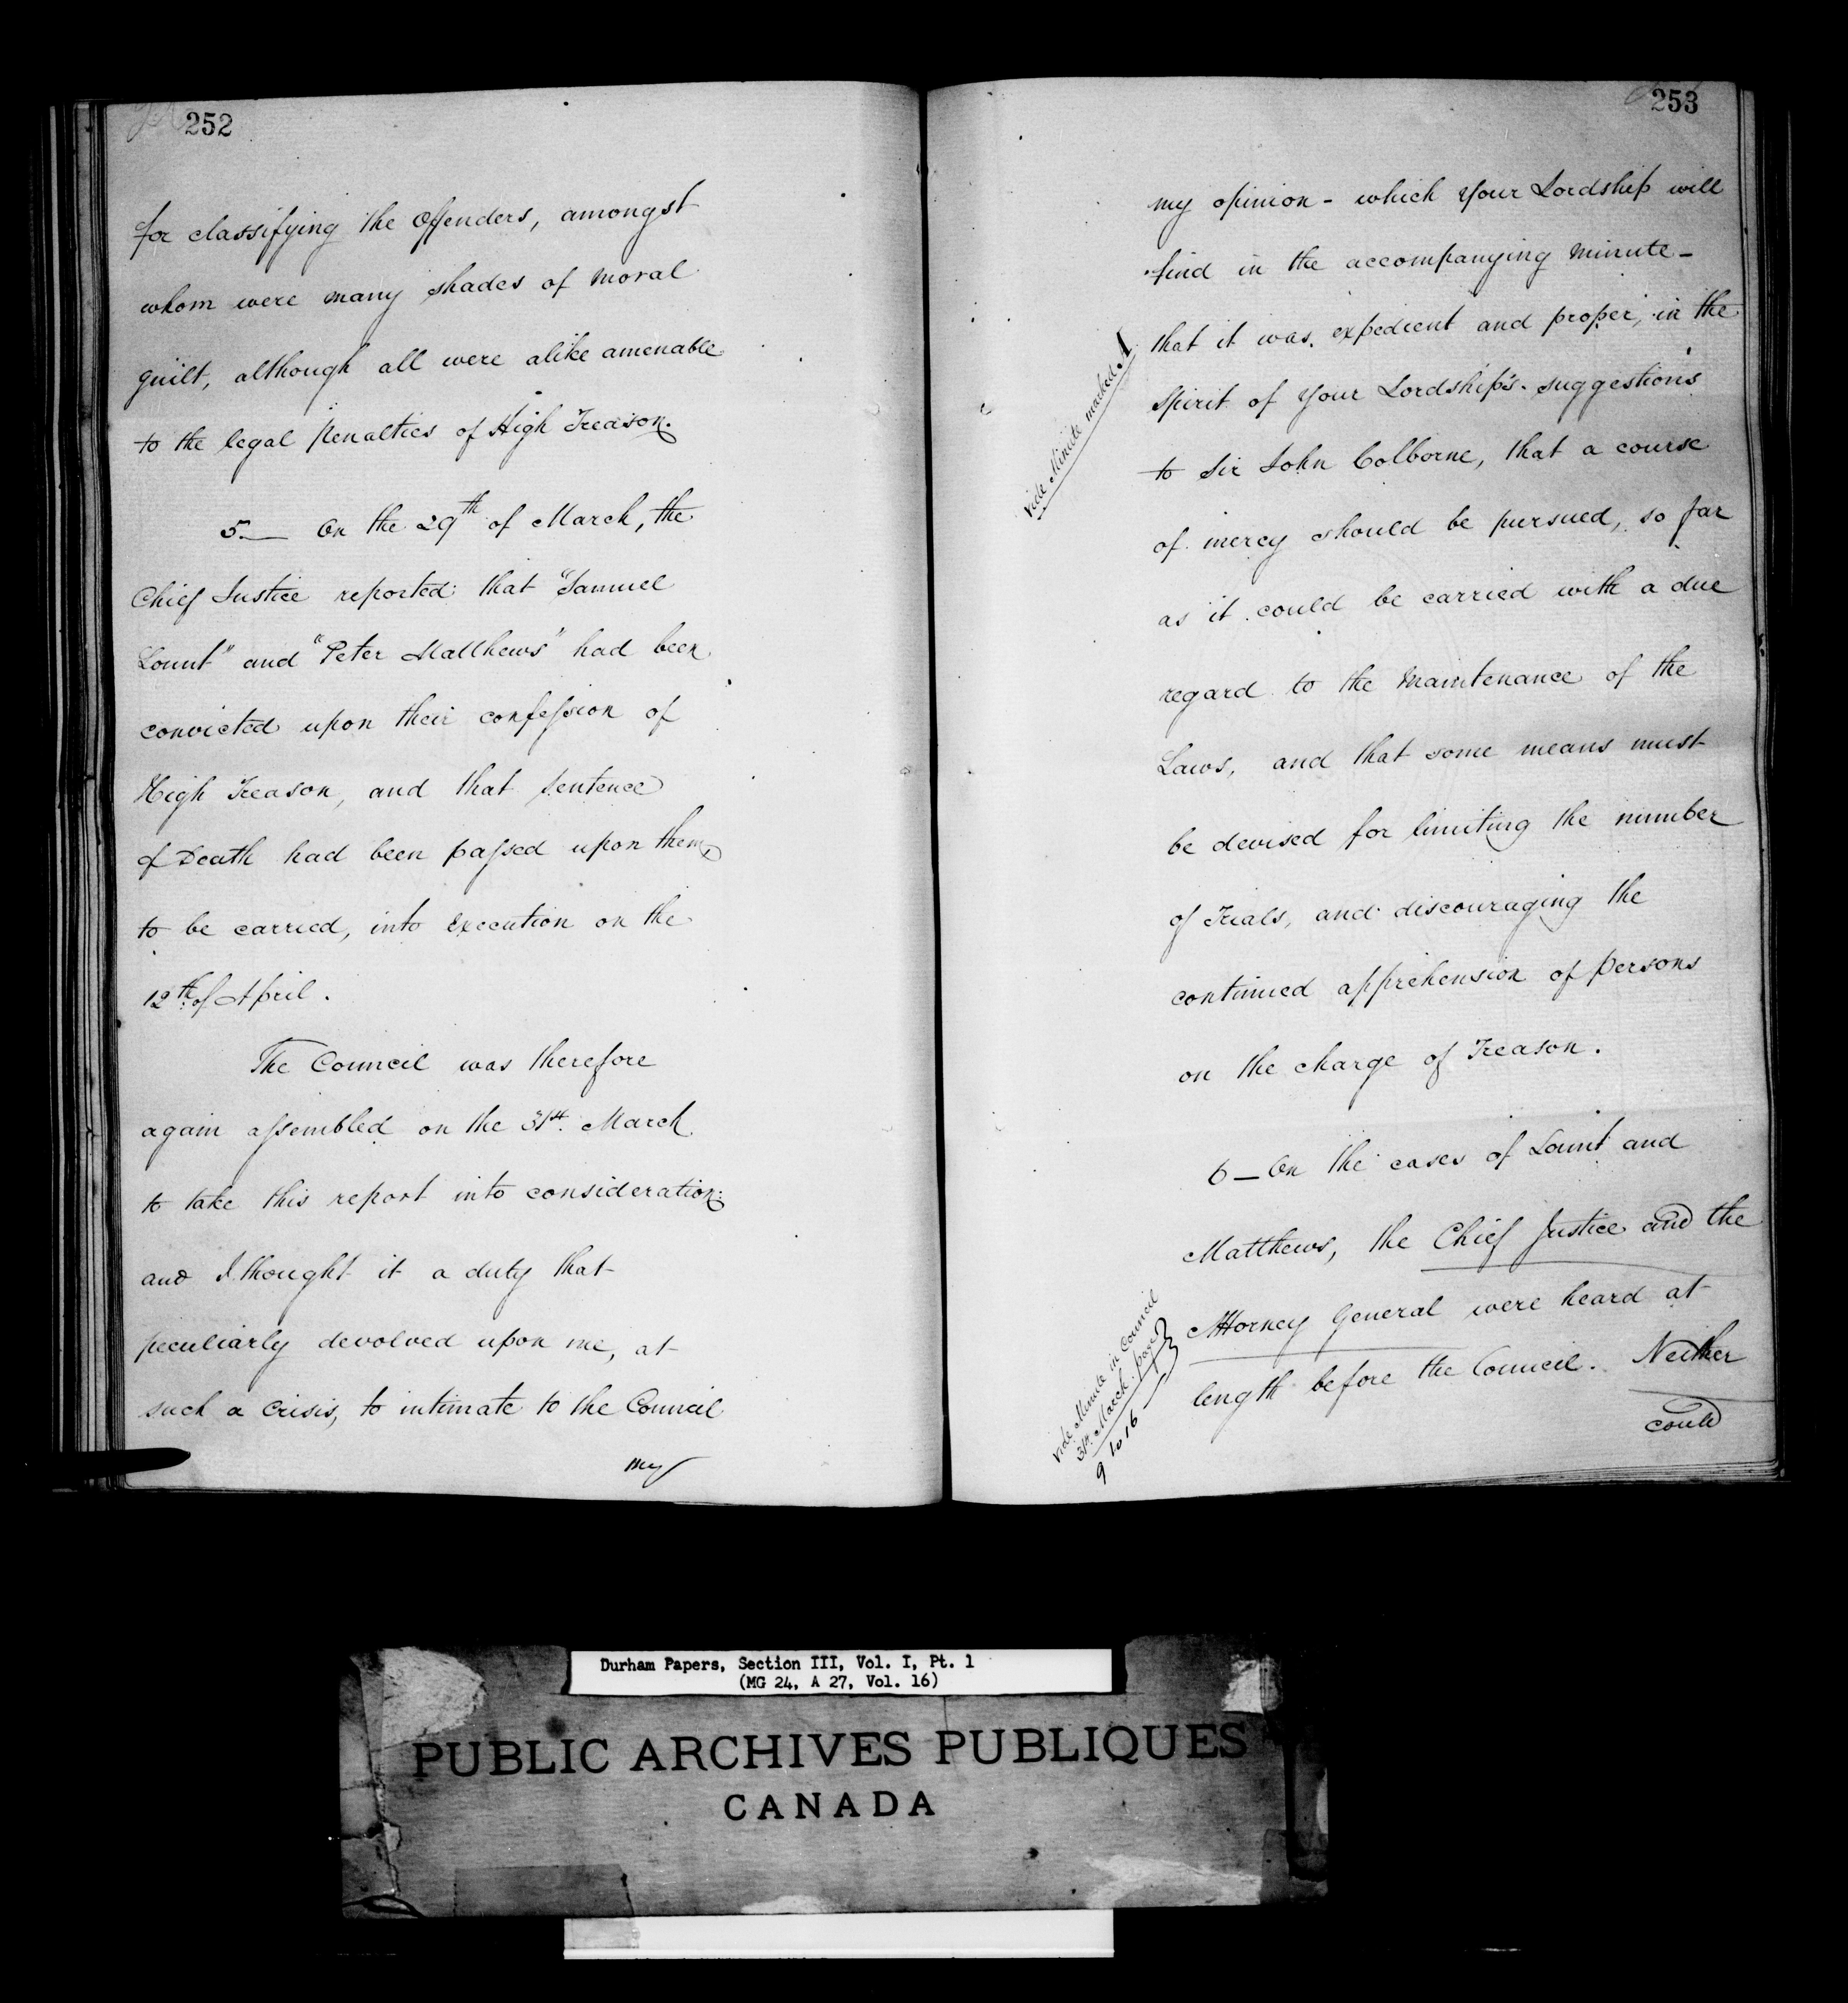 252
for classifying the Offenders, amongst
whom were many shades of moral
guilt, although all were alike amenable
to the legal Penalties of High Treason.
5.— On the 29th of March, the
Chief Justice reported that "Samuel
Lount" and "Peter Matthews" had been
convicted upon their confession of
High Treason, and that sentence
of Death had been passed upon them,
to be carried, into Execution on the
12th of April.
The Council was therefore
again assembled on the 31st March
to take this report into consideration;
and I thought it a duty that
peculiarly devolved upon me, at
such a Crisis, to intimate to the Council
my
253
my opinion - which Your Lordship will
find in the accompanying Minute -
that it was expedient and proper, in the
Spirit of Your Lordship's suggestions
to Sir John Colborne, that a course
of mercy should be pursued, so far
as it could be carried with a due
regard to the Maintenance of the
Laws, and that some means must
be devised for limiting the number
of Trials, and discouraging the
continued apprehension of Persons
on the charge of Treason.
vide Minute marked A
6 — On the cases of Lount and
Matthews, the Chief Justice and the
Attorney General were heard at
length before the Council. Neither
could
vide Minute in Council
31st March. page
9 to 16
Durham Papers, Section III, Vol. I, Pt. 1
(MG 24, A 27, Vol. 16)
PUBLIC ARCHIVES PUBLIQUES
CANADA